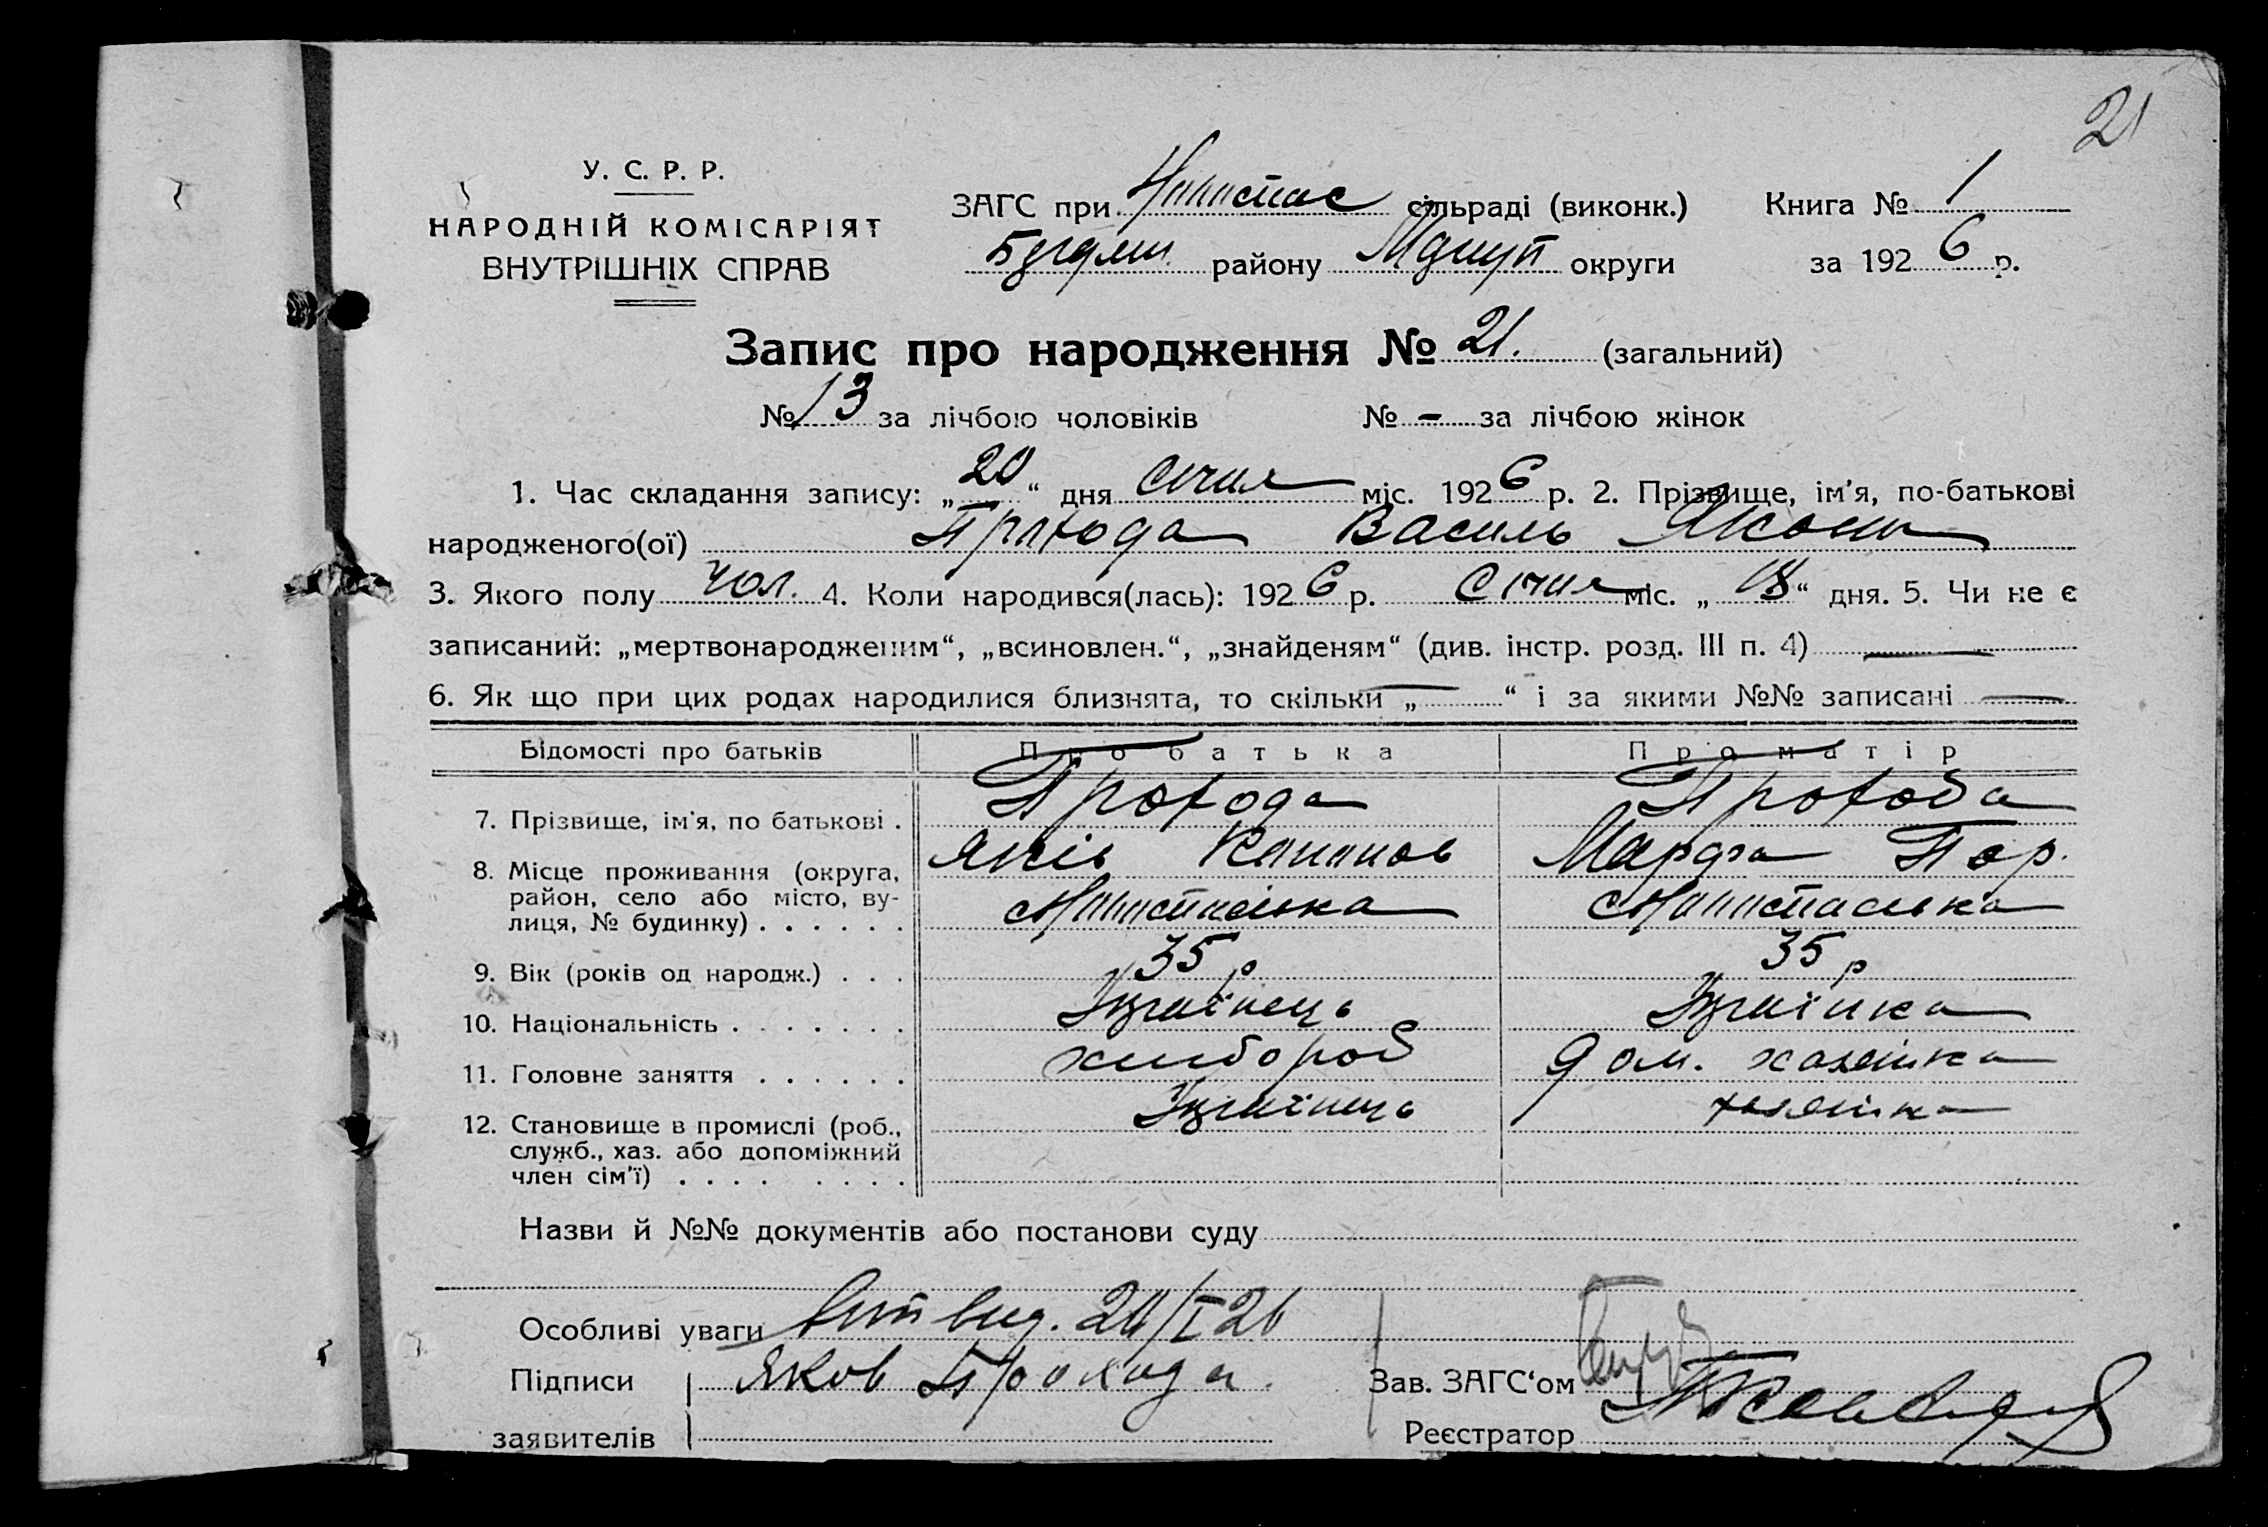 21
У. С. Р. Р.
НАРОДНІЙ КОМІСАРІЯТ
ВНУТРІШНІХ СПРАВ
ЗАГС при сільраді (виконк.) Книга № 1
району округи за 1926 р.
Запис про народження № 21. (загальний)
№ 13 за лічбою чоловіків № - за лічбою жінок
1. Час складання запису: „20“ дня січня міс. 1926 р. 2. Прізвище, ім'я, по-батькові
народженого(ої) Прохода Василь Яковл
3. Якого полу чол. 4. Коли народився(лась): 1926 р. Січня міс. „18“ дня. 5. Чи не є
записаний: „мертвонародженим“, „всиновлен.“, „знайденям“ (див. інстр. розд. III п. 4) —
6. Як що при цих родах народилися близнята, то скільки „—“ і за якими №№ записані —
Відомості про батьків Про батька Про матір
7. Прізвище, ім'я, по батькові . Прохода Прохода
Яків Марфа
8. Місце проживання (округа,
район, село або місто, ву-
лиця, № будинку) . . . . . .
9. Вік (років од народж.) . . . 35 р 35 р
10. Національність . . . . . . . Українець Українка
11. Головне заняття . . . . . . хлібороб Дом. хазяйка
12. Становище в промислі (роб., Українець хазяйка
служб., хаз. або допоміжний
член сім'ї) . . . . . . . .
Назви й №№ документів або постанови суду
Особливі уваги вит вид. 20/I 26
Підписи Яков Прохода. Зав. ЗАГС‘ом
заявителів Реєстратор